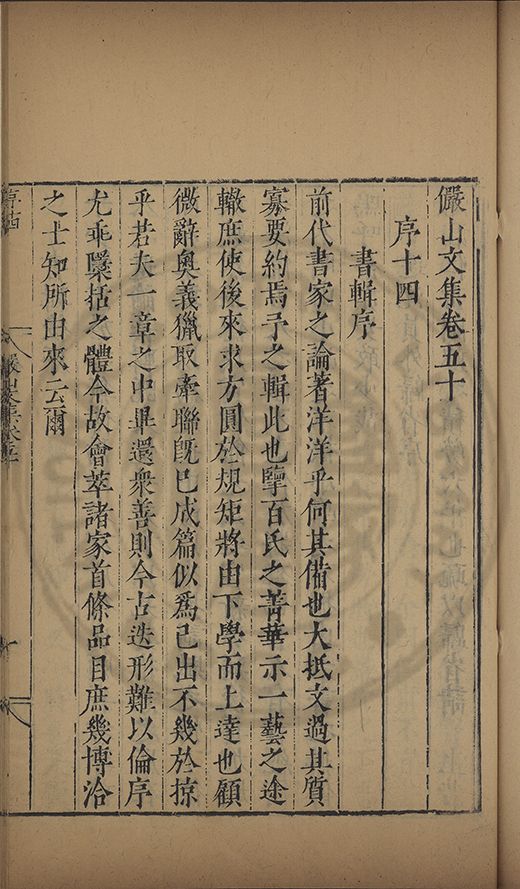 儼山文集卷五十
序十四
書輯序
前代書家之論著洋洋乎何其備也大抵文過其質
寡要約焉予之輯此也擥百氏之菁華示一藝之途
轍庶使後來求方圓於規矩將由下學而上達也顧
微辭奧義獵取牽聯旣已成篇似爲己出不幾於掠
乎若夫一章之中畢還衆善則今古迭形難以倫序
尤乖櫽括之體今故會萃諸家首條品目庶幾博洽
之士知所由來云爾